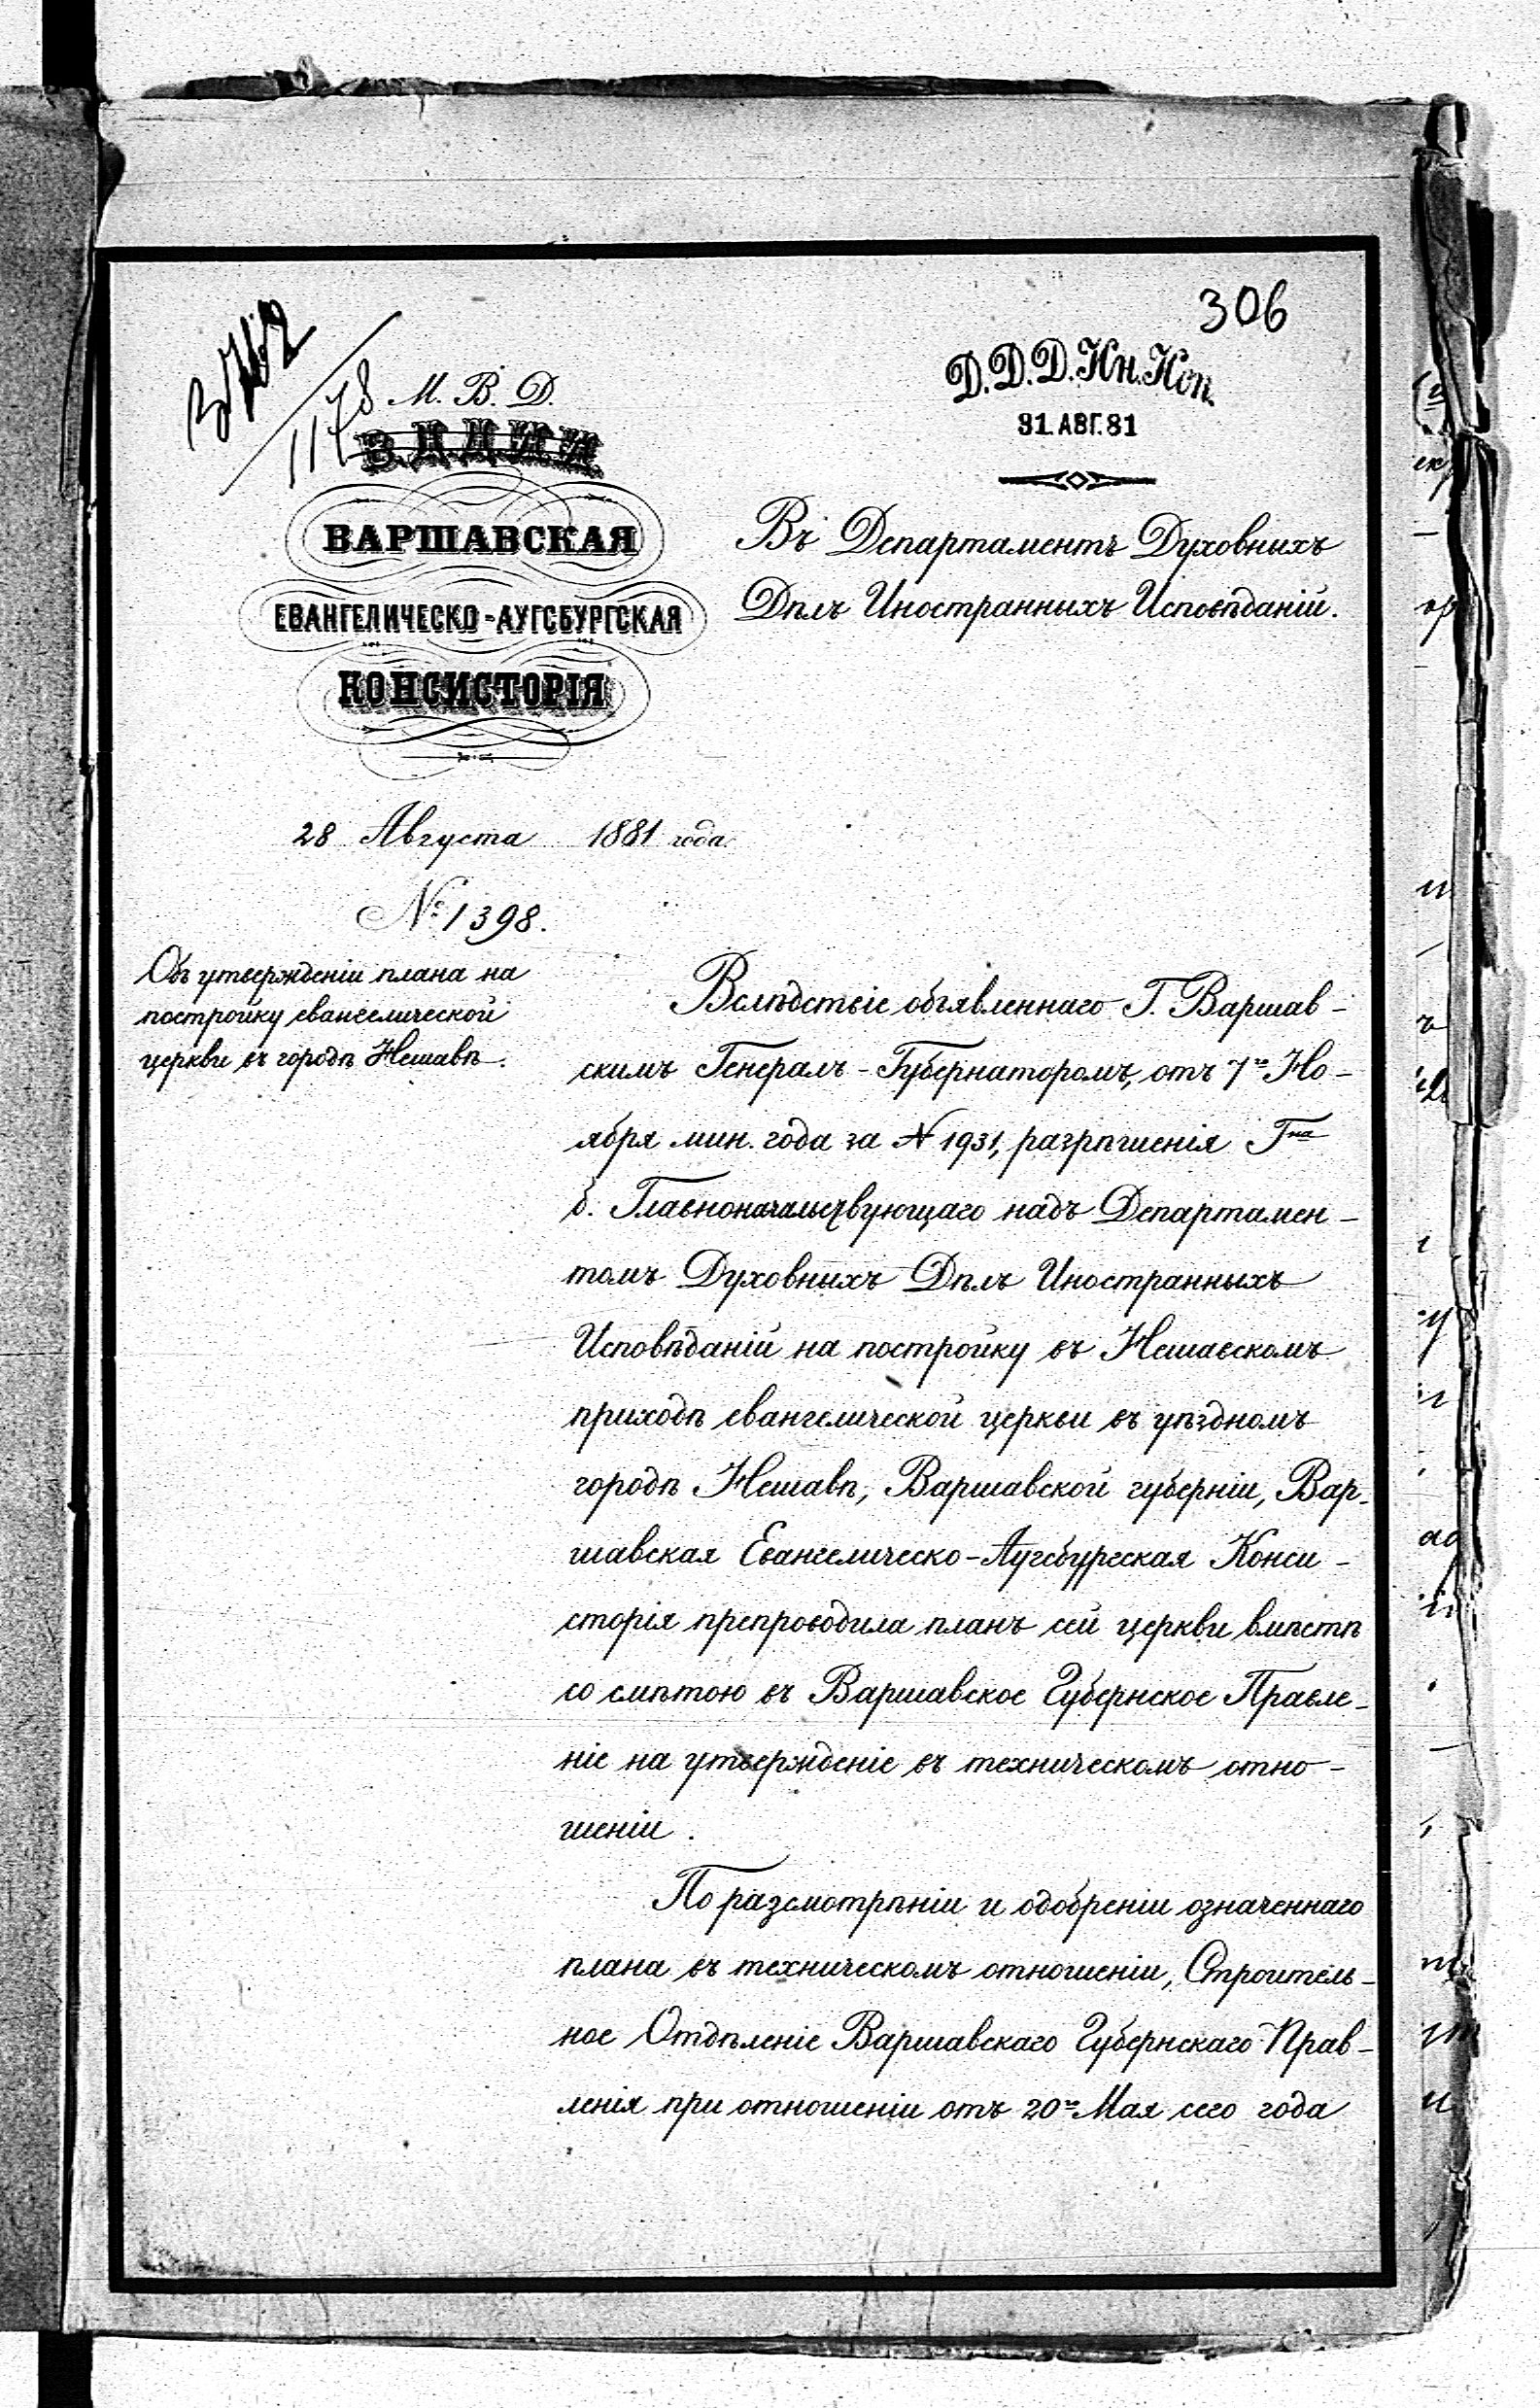 306
1178
М. В. Д.
Д.Д.Д.Ин.Исп.
31.АВГ.81
ВАРШАВСКАЯ
ЕВАНГЕЛИЧЕСКО-АУГСБУРГСКАЯ
КОНСИСТОРІЯ
28 Августа 1881 года.
№ 1398.
Объ утвержденіи плана на
постройку евангелической
церкви въ городѣ Нешавѣ.
Въ Департаментъ Духовныхъ
Дѣлъ Иностранныхъ Исповѣданій.
Вслѣдствіе объявленнаго Г. Варшав-
скимъ Генералъ-Губернаторомъ, отъ 7го Но-
ября мин. года за № 1931, разрѣшенія Гна
б. Главноначальствующаго надъ Департамен-
томъ Духовныхъ Дѣлъ Иностранныхъ
Исповѣданій на постройку въ Нешавскомъ
приходѣ евангелической церкви въ уѣздномъ
городѣ Нешавѣ, Варшавской губерніи, Вар-
шавская Евангелическо-Аугсбургская Конси-
сторія препроводила планъ сей церкви вмѣстѣ
со смѣтою въ Варшавское Губернское Правле-
ніе на утвержденіе въ техническомъ отно-
шеніи.
По разсмотрѣніи и одобреніи означеннаго
плана въ техническомъ отношеніи, Строитель-
ное Отдѣленіе Варшавскаго Губернскаго Прав-
ленія при отношеніи отъ 20го Мая сего года